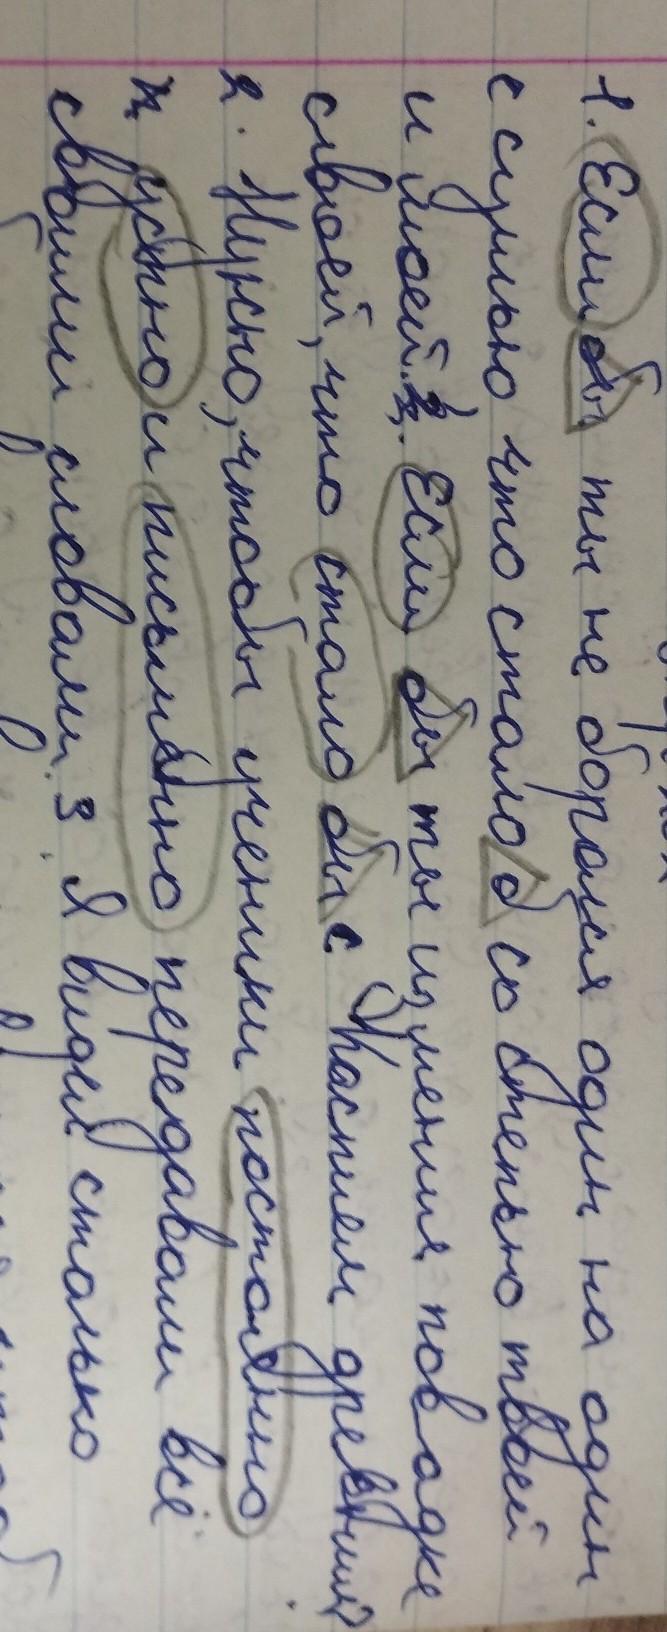 1. Если бы ты не боролся один на один
с сушью что стало б со степью твоей
и моей. 2. Если бы ты изменил повадке
своей, что стало бы с Каспием древним?
2. Нужно, чтобы ученики постоянно
и устно и письменно передавали всё
своими словами. 3. Я видел столько